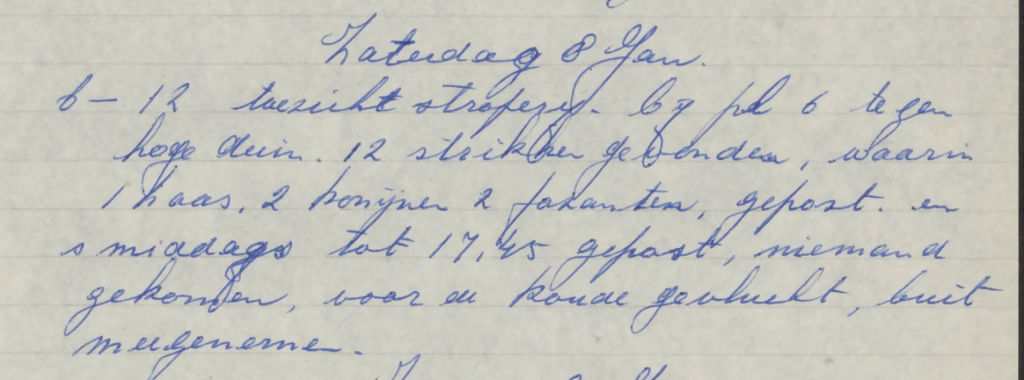 Zaterdag 8 Jan.
6 – 12 toezicht stroperij. bij pl 6 tegen
hoge duin. 12 strikken gevonden, waarin
1 haas, 2 konijnen 2 fazanten, gepost. en
s middags tot 17,45 gepost, niemand
gekomen, voor de koude gevlucht, buit
meegenomen.